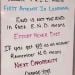 First Attempt In Learning
End is not the end
in fact E.N.D. means
Effort Never Dies
If you get no as an answer
remember N.O. means
Next Opportunity